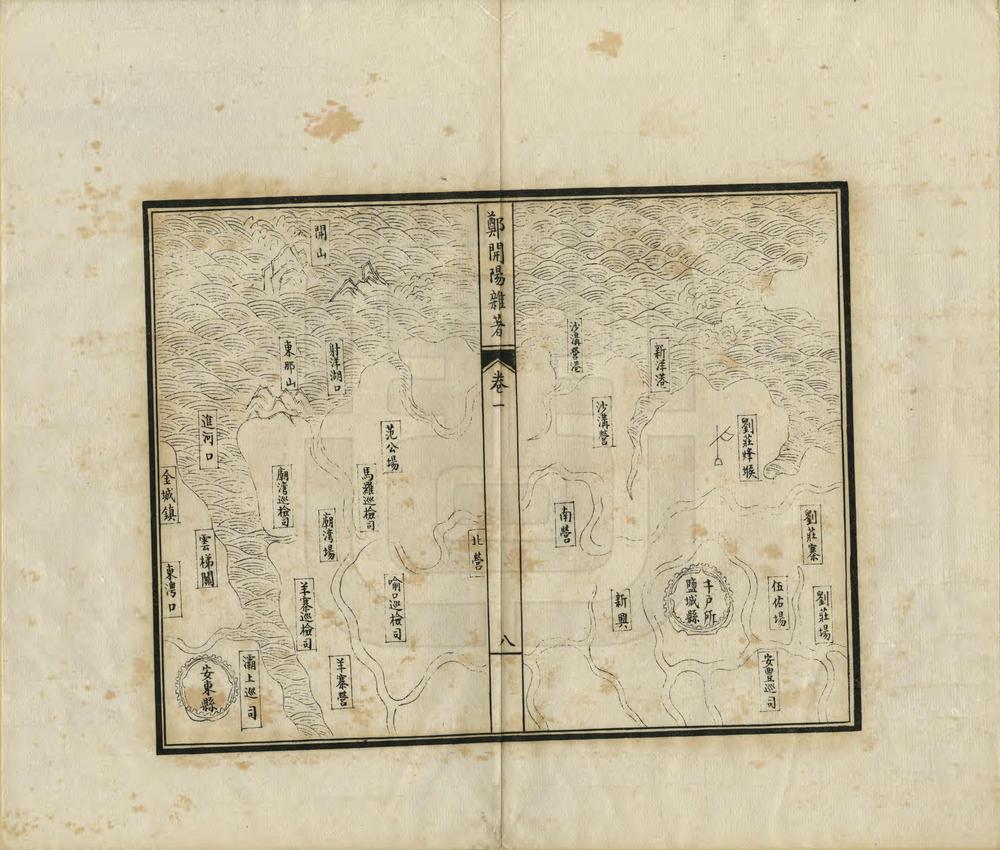 新洋港
沙溝營港
沙溝營
劉莊烽堠
劉莊寨
南營
劉莊場
伍佑場
千戶所
鹽城縣
新興
安豐巡司
鄭開陽雜著
卷一
八
開山
射洋湖口
東那山
進河口
范公場
馬羅巡檢司
廟灣巡檢司
金城鎮
廟灣場
北營
雲梯關
東灣口
喻口巡檢司
羊寨巡檢司
羊寨營
灞上巡司
安東縣